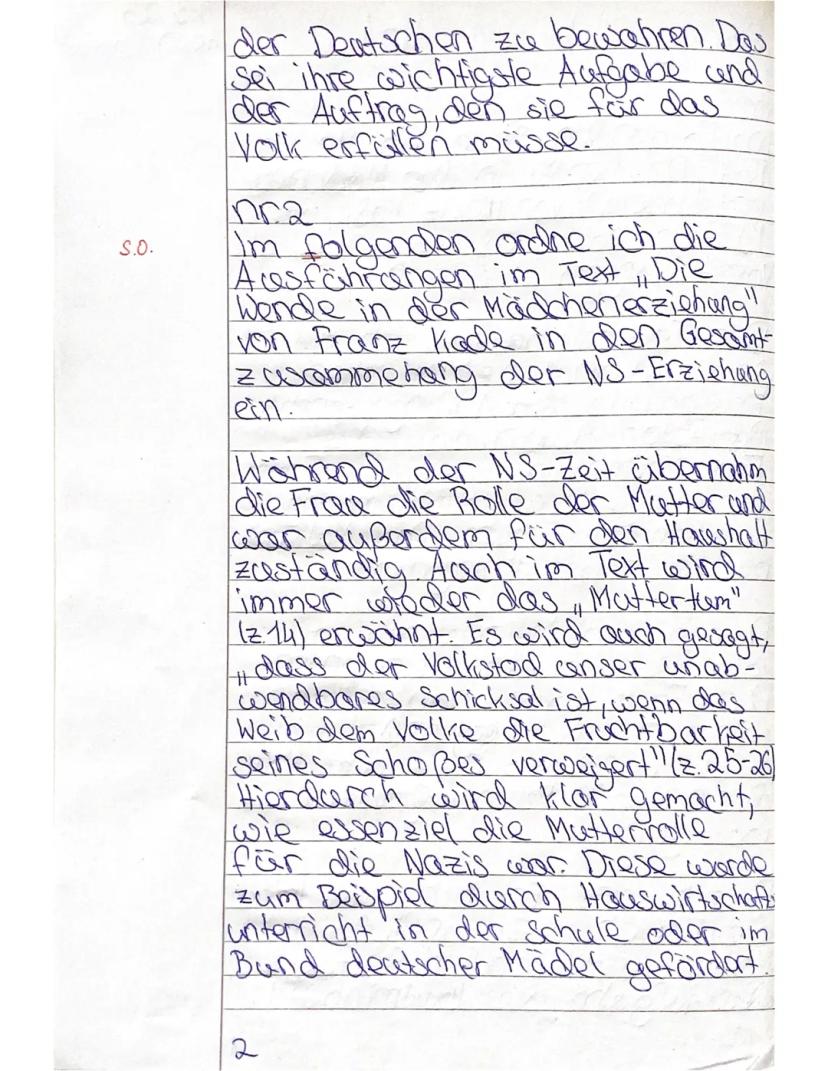 der Deutschen zu bewahren. Das
sei ihre wichtigste Aufgabe und
der Auftrag, den sie für das
Volk erfüllen müsse.
nr. 2
S.O.
Im folgenden ordne ich die
Ausführungen im Text „Die
Wende in der Mädchenerziehung"
von Franz Kade in den Gesamt-
zusammehang der NS-Erziehung
ein.
Während der NS-Zeit übernahm
die Frau die Rolle der Mutter und
war außerdem für den Haushalt
zuständig. Auch im Text wird
immer wieder das „Muttertum"
(z.14) erwähnt. Es wird auch gesagt,
„dass der Volkstod unser unab-
wendbares Schicksal ist, wenn das
Weib dem Volke die Fruchtbarkeit
seines Schoßes verweigert" (z. 25-26)
Hierdurch wird klar gemacht,
wie essenziel die Mutterrolle
für die Nazis war. Diese wurde
zum Beispiel durch Hauswirtschafts
unterricht in der schule oder im
Bund deutscher Mädel gefördert.
2